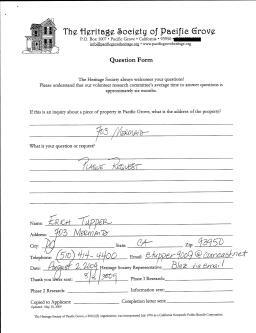 The Heritage Society of Pacific Grove
P.O. Box 1007 • Pacific Grove • California • 93950
info@pacificgroveheritage.org • www.pacificgroveheritage.org
Question Form
The Heritage Society always welcomes your questions!
Please understand that our volunteer research committee's average time to answer questions is
approximately six months.
If this is an inquiry about a piece of property in Pacific Grove, what is the address of the property?
903 Mermaid
What is your question or request?
Plaque Request
Name: Erica Tupper
Address: 903 Mermaid
City: PG State CA Zip 93950
Telephone: (510) 414-4400 Email: etupper9009@comcast.net
Date: August 2, 2009 Heritage Society Representative: via email
Thank you letter sent: Phase 1 Research:
Phase 2 Research: Information sent:
Copied to Applicant: Completion letter sent:
Updated:
The Heritage Society of Pacific Grove, a 501(c)(3) organization, was incorporated